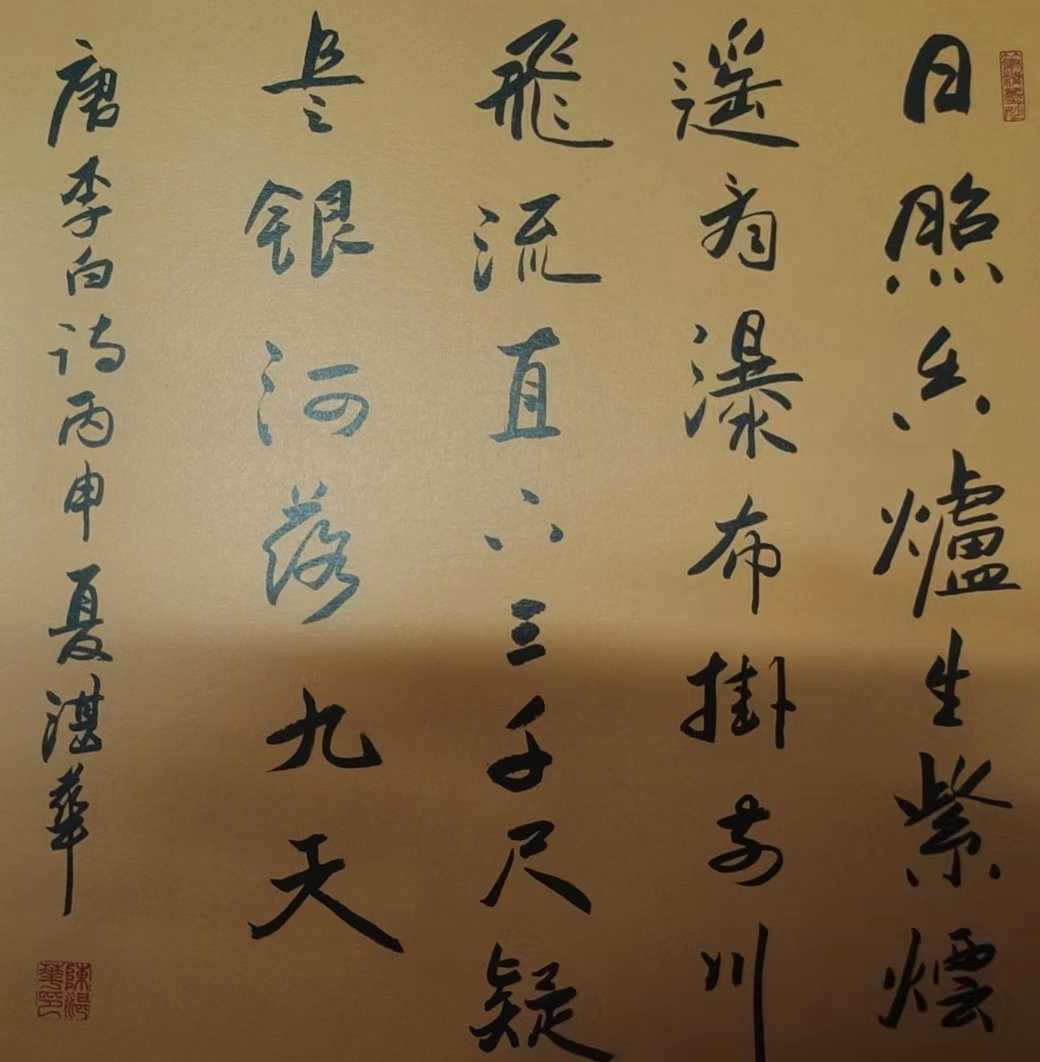 日照香爐生紫煙
遙看瀑布掛前川
飛流直下三千尺疑
是銀河落九天
唐李白诗丙申夏湛華
陳湛華印